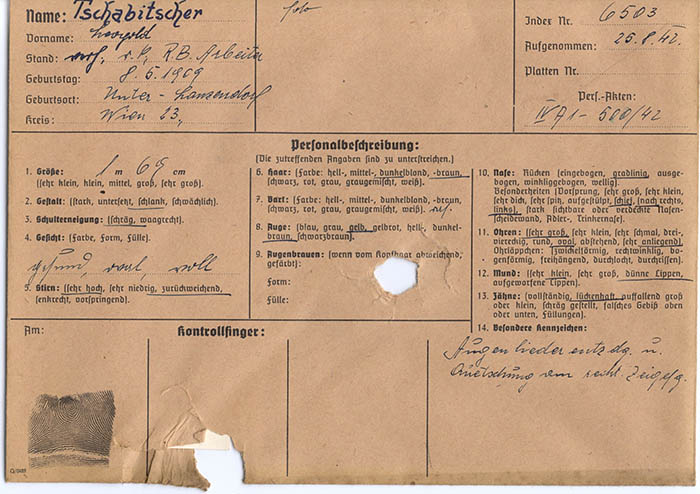 Name: Tschabitscher
Vorname: Leopold
Stand: verh. r.k. R.B. Arbeiter
Geburtstag: 8. 5. 1909
Geburtsort: Unter-Lanzendorf
Kreis: Wien 23.,
foto
Index Nr. 6503
Aufgenommen: 25.8.42.
Platten Nr.
Pers.-Akten:
IV A1- 500/42
Personalbeschreibung:
(Die zutreffenden Angaben sind zu unterstreichen.)
1. Größe: 1 m 69 cm
(sehr klein, klein, mittel, groß, sehr groß).
2. Gestalt: (stark, untersetzt, schlank, schwächlich).
3. Schulterneigung: (schräg, waagrecht).
4. Gesicht: (Farbe, Form, Fülle).
gesund, oval, voll
5. Stirn: (sehr hoch, sehr niedrig, zurückweichend,
senkrecht, vorspringend).
6. Haar: (Farbe: hell-, mittel-, dunkelblond, -braun,
schwarz, rot, grau, graugemischt, weiß).
7. Bart: (Farbe: hell-, mittel-, dunkelblond, -braun,
schwarz, rot, grau, graugemischt, weiß).
8. Auge: (blau, grau, gelb, gelbrot, hell-, dunkel-
braun, schwarzbraun).
9. Augenbrauen: (wenn vom Kopfhaar abweichend,
gefärbt):
Form:
Fülle:
10. Nase: Rücken (eingebogen, gradlinig, ausge-
bogen, winkliggebogen, wellig).
Besonderheiten (Vorsprung, sehr groß, sehr klein,
sehr dick, sehr spitz, aufgestülpt, schief, nach rechts,
links), stark sichtbare oder verdeckte Nasen-
scheidewand, Adler-, Trinkernase).
11. Ohren: (sehr groß, sehr klein, schmal, drei-,
viereckig, rund, oval, abstehend, sehr anliegend).
Ohrläppchen: (zwickelförmig, rechtwinklig, bo-
genförmig, freihängend, durchlocht, durchrissen).
12. Mund: (sehr klein, sehr groß, dünne Lippen,
aufgeworfene Lippen).
13. Zähne: (vollständig, lückenhaft, auffallend groß
oder klein, schräg gestellt, falsches Gebiß oben
oder unten, Füllungen).
14. Besondere Kennzeichen:
Augenlieder entzdg. u.
Quetschung am recht. Zeigefg.
Am:
Kontrollfinger: